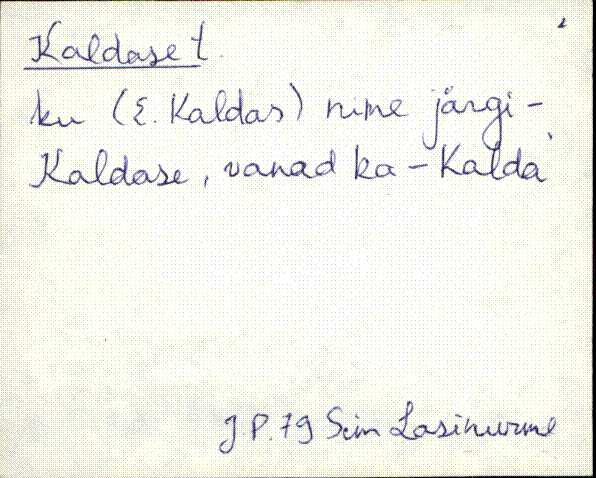 Kaldase t.
ku (E. Kaldas) nime järgi -
Kaldase, vanad ka - Kalda
J. P. 79 Sim Lasinurme